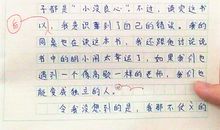 子都是“小没良心”。不过，读完这书
以，我意识到了自己的错误。我的
同桌也在读这本书，我还跟他讨论说
书中的明小闹太幸运了，如果我们也
遇到一个像高歌一样的老师，我们也
能变成独立的人。
令我没想到的是，我那不